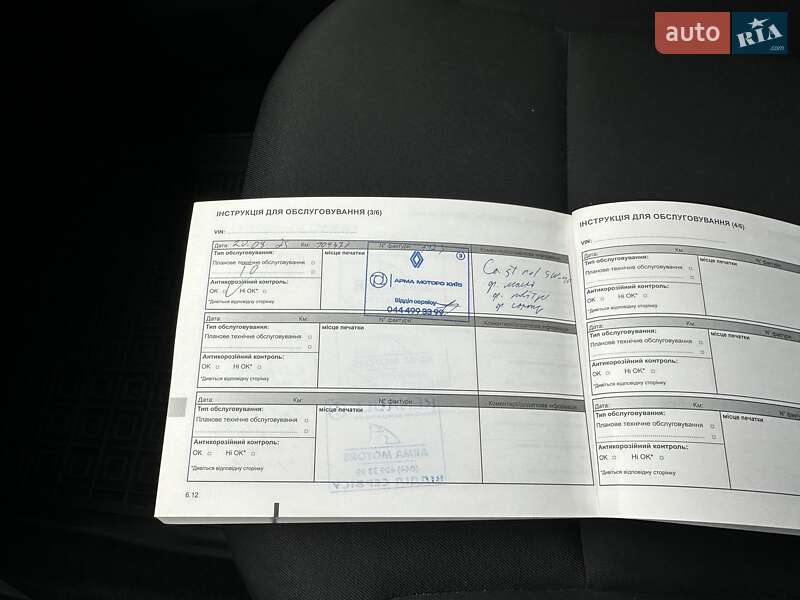 auto RIA .com
ІНСТРУКЦІЯ ДЛЯ ОБСЛУГОВУВАННЯ (3/6)
VIN:
Дата: Км: N° фактури Коментарі/додаткова інформація
Тип обслуговування: місце печатки
Планове технічне обслуговування
ТО
Антикорозійний контроль:
OK Ні OK*
*Дивіться відповідну сторінку
АРМА МОТОРС КИЇВ
Відділ сервісу
044 499 33 99
Дата: Км: N° фактури Коментарі/додаткова інформація
Тип обслуговування: місце печатки
Планове технічне обслуговування
Антикорозійний контроль:
OK Ні OK*
*Дивіться відповідну сторінку
Дата: Км: N° фактури Коментарі/додаткова інформація
Тип обслуговування: місце печатки
Планове технічне обслуговування
Антикорозійний контроль:
OK Ні OK*
*Дивіться відповідну сторінку
6.12
ІНСТРУКЦІЯ ДЛЯ ОБСЛУГОВУВАННЯ (4/6)
VIN:
Дата: Км:
Тип обслуговування: місце печатки
Планове технічне обслуговування
Антикорозійний контроль:
OK Ні OK*
*Дивіться відповідну сторінку
Дата: Км:
Тип обслуговування: місце печатки
Планове технічне обслуговування
Антикорозійний контроль:
OK Ні OK*
*Дивіться відповідну сторінку
Дата: Км:
Тип обслуговування: місце печатки
Планове технічне обслуговування
Антикорозійний контроль:
OK Ні OK*
*Дивіться відповідну сторінку